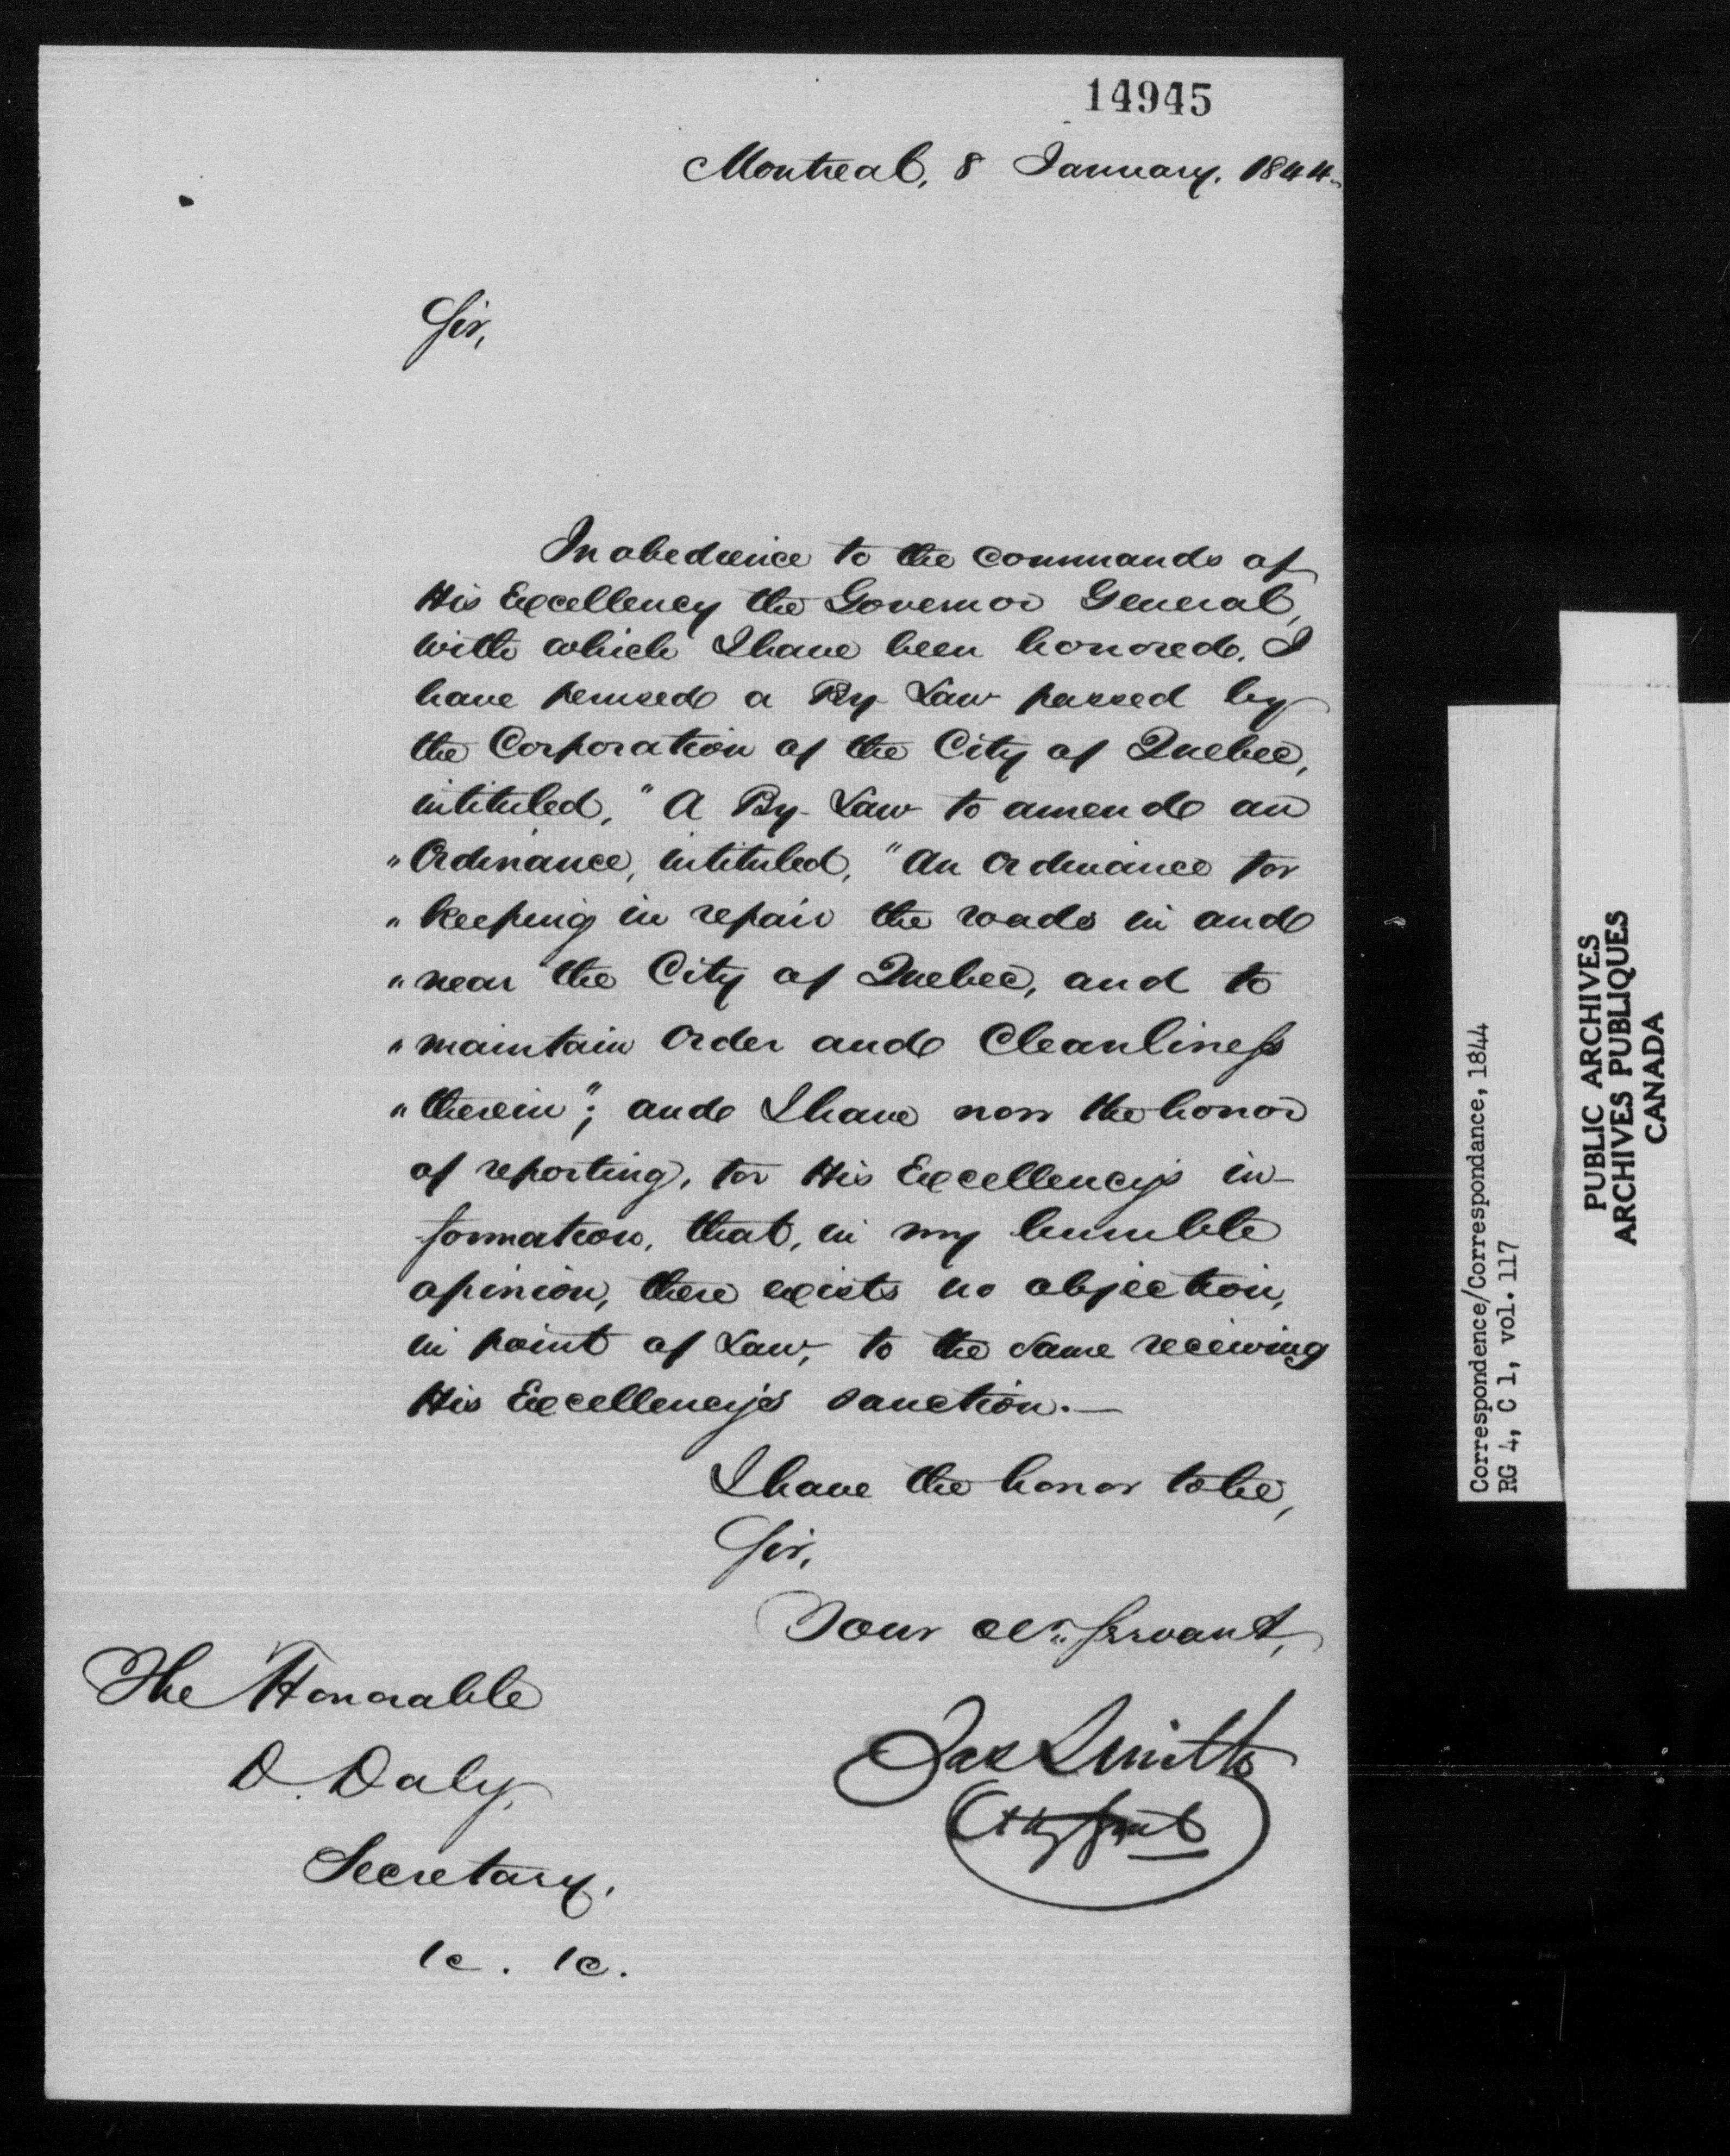 14945
Montreal, 8 January. 1844.
Sir,
In obedience to the commands of
His Excellency the Governor General,
with which I have been honored. I
have perused a By-Law passed by
the Corporation of the City of Quebec,
intituled, "A By-Law to amend an
"Ordinance, intituled, "An Ordinance for
"keeping in repair the roads in and
"near the City of Quebec, and to
"maintain order and Cleanliness
"therein"; and I have now the honor
of reporting, for His Excellency's in-
-formation, that, in my humble
opinion, there exists no objection,
in point of Law, to the same receiving
His Excellency's sanction.—
I have the honor to be,
Sir,
Your obt. servant,
Jas Smith
Atty Genl
The Honorable
D. Daly,
Secretary,
&c. &c.
Correspondence/Correspondance, 1844
RG 4, C 1, vol. 117
PUBLIC ARCHIVES
ARCHIVES PUBLIQUES
CANADA